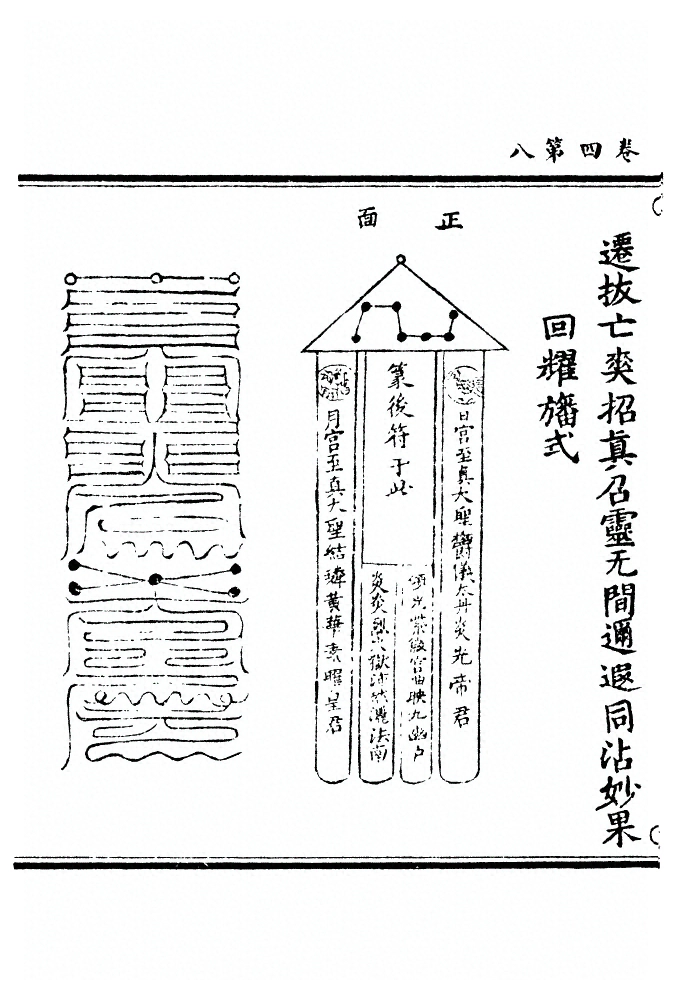 卷四第八
遷拔亡爽招真召靈无間邇遐同沾妙果
回耀旛式
正面
日宮至真大聖鬱儀太丹炎光帝君
篆後符于此
回映九幽戶
炎炎烈火獄
法南
月宮至真大聖結璘黃華素曜皇君